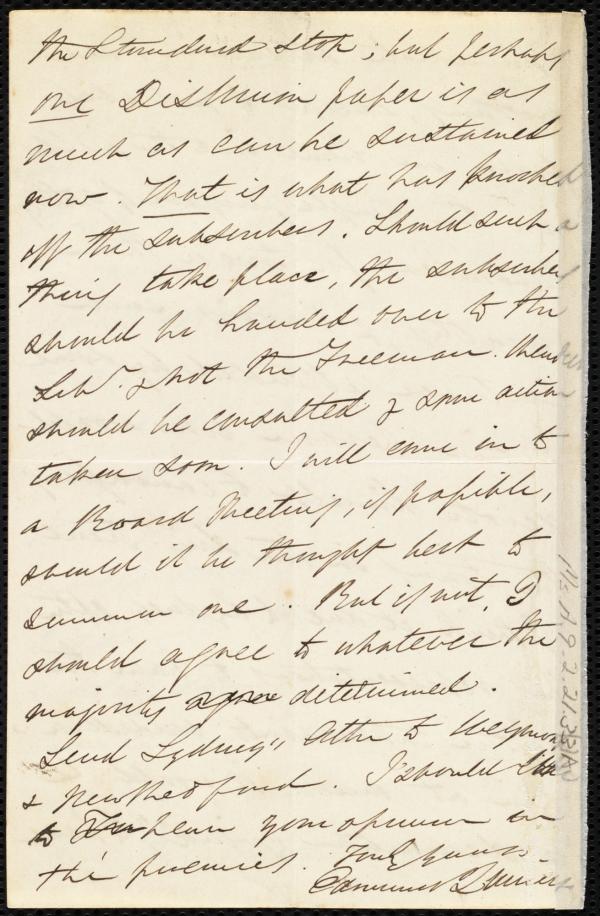 the Standard stop; but perhaps
one Disunion paper is as
much as can be sustained
now. That is what has knocked
off the subscribers. Should such a
thing take place, the subscribers
should be handed over to the
Libr. & not the Freeman.
should be consulted & some action
taken soon. I will come in to
a Board Meeting, if possible,
should it be thought best to
summon one. But if not, I
should agree to whatever the
majority agree determined.
Send Sydney's letter to Weymouth
& New Bedford. I should like
to hear your opinion in
the premises. Yours
Edmund Quincy
Ms. A.9.2.21.33(A)